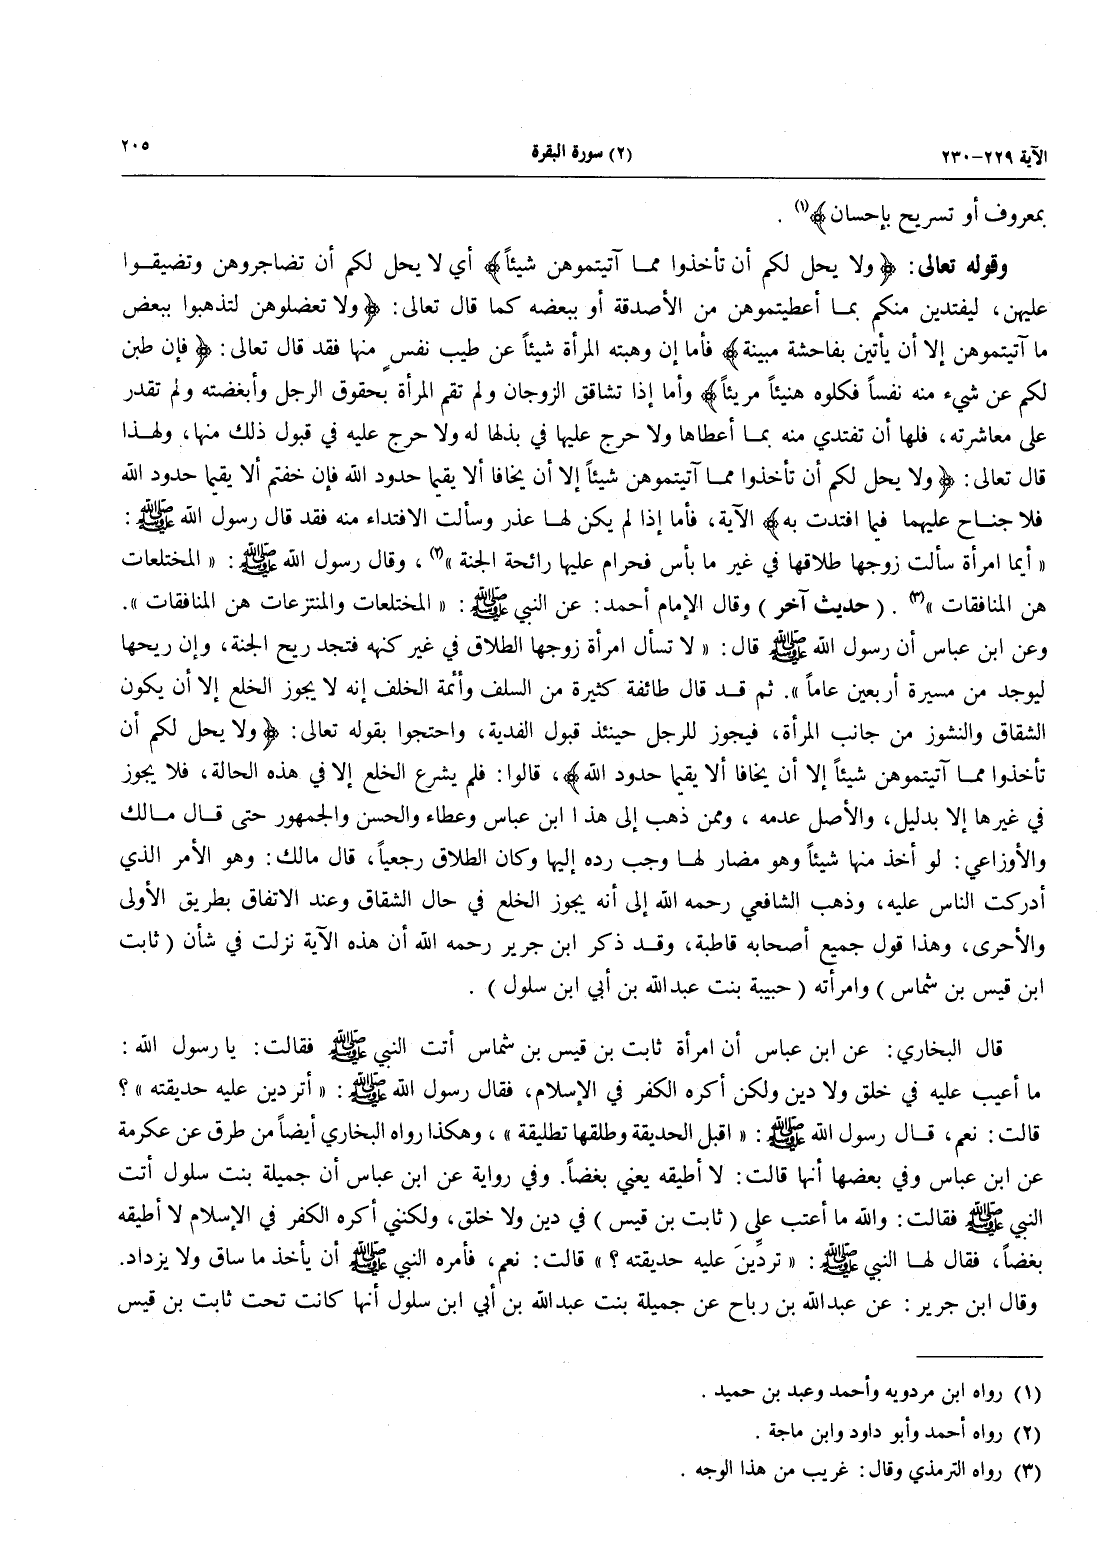 الآية ٢٢٩-٢٣٠ (٢) سورة البقرة ٢٠٥
بمعروف أو تسريح بإحسان﴾(١) .
وقوله تعالى: ﴿ولا يحل لكم أن تأخذوا ممـا آتيتموهن شيئاً﴾ أي لا يحل لكم أن تضاجروهن وتضيقـوا
عليهن، ليفتدين منكم بمـا أعطيتموهن من الأصدقة أو ببعضه كما قال تعالى: ﴿ولا تعضلوهن لتذهبوا ببعض
ما آتيتموهن إلا أن يأتين بفاحشة مبينة﴾ فأما إن وهبته المرأة شيئاً عن طيب نفسٍ منها فقد قال تعالى: ﴿فإن طبن
لكم عن شيء منه نفساً فكلوه هنيئاً مريئاً﴾ وأما إذا تشاقق الزوجان ولم تقم المرأة بحقوق الرجل وأبغضته ولم تقدر
على معاشرته، فلها أن تفتدي منه بمـا أعطاها ولا حرج عليها في بذلها له ولا حرج عليه في قبول ذلك منها، ولهـذا
قال تعالى: ﴿ولا يحل لكم أن تأخذوا ممـا آتيتموهن شيئاً إلا أن يخافا ألا يقيما حدود الله فإن خفتم ألا يقيما حدود الله
فلا جنـاح عليهما فيما افتدت به﴾ الآية، فأما إذا لم يكن لهـا عذر وسألت الافتداء منه فقد قال رسول الله ﷺ :
« أيما امرأة سألت زوجها طلاقها في غير ما بأس فحرام عليها رائحة الجنة »(٢) ، وقال رسول الله ﷺ : « المختلعات
هن المنافقات »(٣) . ( حديث آخر ) وقال الإمام أحمد: عن النبي ﷺ : « المختلعات والمنتزعات هن المنافقات ».
وعن ابن عباس أن رسول الله ﷺ قال: « لا تسأل امرأة زوجها الطلاق في غير كنهه فتجد ريح الجنة، وإن ريحها
ليوجد من مسيرة أربعين عاماً ». ثم قـد قال طائفة كثيرة من السلف وأئمة الخلف إنه لا يجوز الخلع إلا أن يكون
الشقاق والنشوز من جانب المرأة، فيجوز للرجل حينئذ قبول الفدية، واحتجوا بقوله تعالى: ﴿ولا يحل لكم أن
تأخذوا ممـا آتيتموهن شيئاً إلا أن يخافا ألا يقيما حدود الله﴾، قالوا: فلم يشرع الخلع إلا في هذه الحالة، فلا يجوز
في غيرها إلا بدليل، والأصل عدمه ، وممن ذهب إلى هذا ابن عباس وعطاء والحسن والجمهور حتى قـال مـالك
والأوزاعي: لو أخذ منها شيئاً وهو مضار لهـا وجب رده إليها وكان الطلاق رجعياً، قال مالك: وهو الأمر الذي
أدركت الناس عليه، وذهب الشافعي رحمه الله إلى أنه يجوز الخلع في حال الشقاق وعند الاتفاق بطريق الأولى
والأحرى، وهذا قول جميع أصحابه قاطبة، وقـد ذكر ابن جرير رحمه الله أن هذه الآية نزلت في شأن ( ثابت
ابن قيس بن شماس ) وامرأته ( حبيبة بنت عبدالله بن أبي ابن سلول ) .
قال البخاري: عن ابن عباس أن امرأة ثابت بن قيس بن شماس أتت النبي ﷺ فقالت: يا رسول الله :
ما أعيب عليه في خلق ولا دين ولكن أكره الكفر في الإسلام، فقال رسول الله ﷺ : « أتردين عليه حديقته » ؟
قالت: نعم، قـال رسول الله ﷺ : « اقبل الحديقة وطلقها تطليقة » ، وهكذا رواه البخاري أيضاً من طرق عن عكرمة
عن ابن عباس وفي بعضها أنها قالت: لا أطيقه يعني بغضاً. وفي رواية عن ابن عباس أن جميلة بنت سلول أتت
النبي ﷺ فقالت: والله ما أعتب على ( ثابت بن قيس ) في دين ولا خلق، ولكنني أكره الكفر في الإسلام لا أطيقه
بغضاً، فقال لهـا النبي ﷺ : « تردِّينَ عليه حديقته ؟ » قالت: نعم، فأمره النبي ﷺ أن يأخذ ما ساق ولا يزداد.
وقال ابن جرير : عن عبدالله بن رباح عن جميلة بنت عبدالله بن أبي ابن سلول أنها كانت تحت ثابت بن قيس
(١) رواه ابن مردويه وأحمد وعبد بن حميد .
(٢) رواه أحمد وأبو داود وابن ماجة .
(٣) رواه الترمذي وقال: غريب من هذا الوجه .